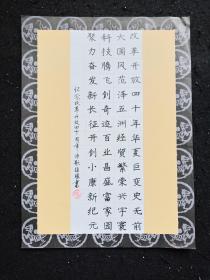 改革开放四十年华夏巨变史无前
大国风范泽五洲经贸繁荣兴宇寰
科技腾飞创奇迹百业昌盛富家园
聚力奋发新长征开创小康新纪元
纪念改革开放四十周年